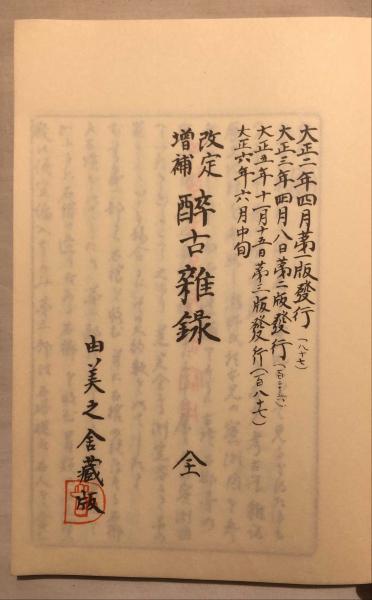 大正二年四月第一版發行(八十七)
大正三年四月八日第二版發行
大正五年十一月十五日第三版發行(百八十七)
大正六年六月中旬
改定
增補
醉古雜錄
全
由美之舍藏版